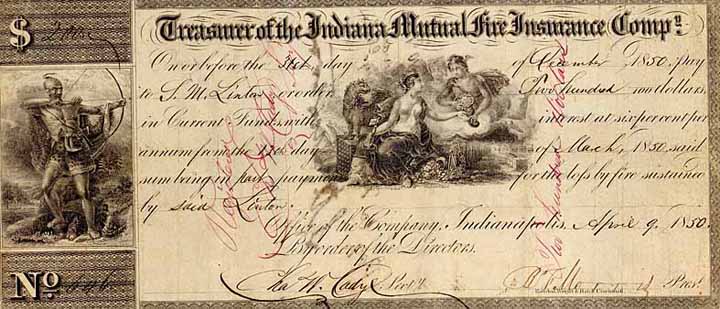 $
Treasurer of the Indiana Mutual Fire Insurance Compy.
On or before the day of December, 1850, pay
to S. M. Linton or order Two hundred 00/100 dollars,
in Current Funds, with interest at six per cent per
annum from the 12th day of March, 1850, said
sum being in part payment for the loss by fire sustained
by said Linton.
Office of the Company, Indianapolis, April 9, 1850.
By order of the Directors.
Cha W. Cady Sect'y. Prest.
No
Two hundred dollars